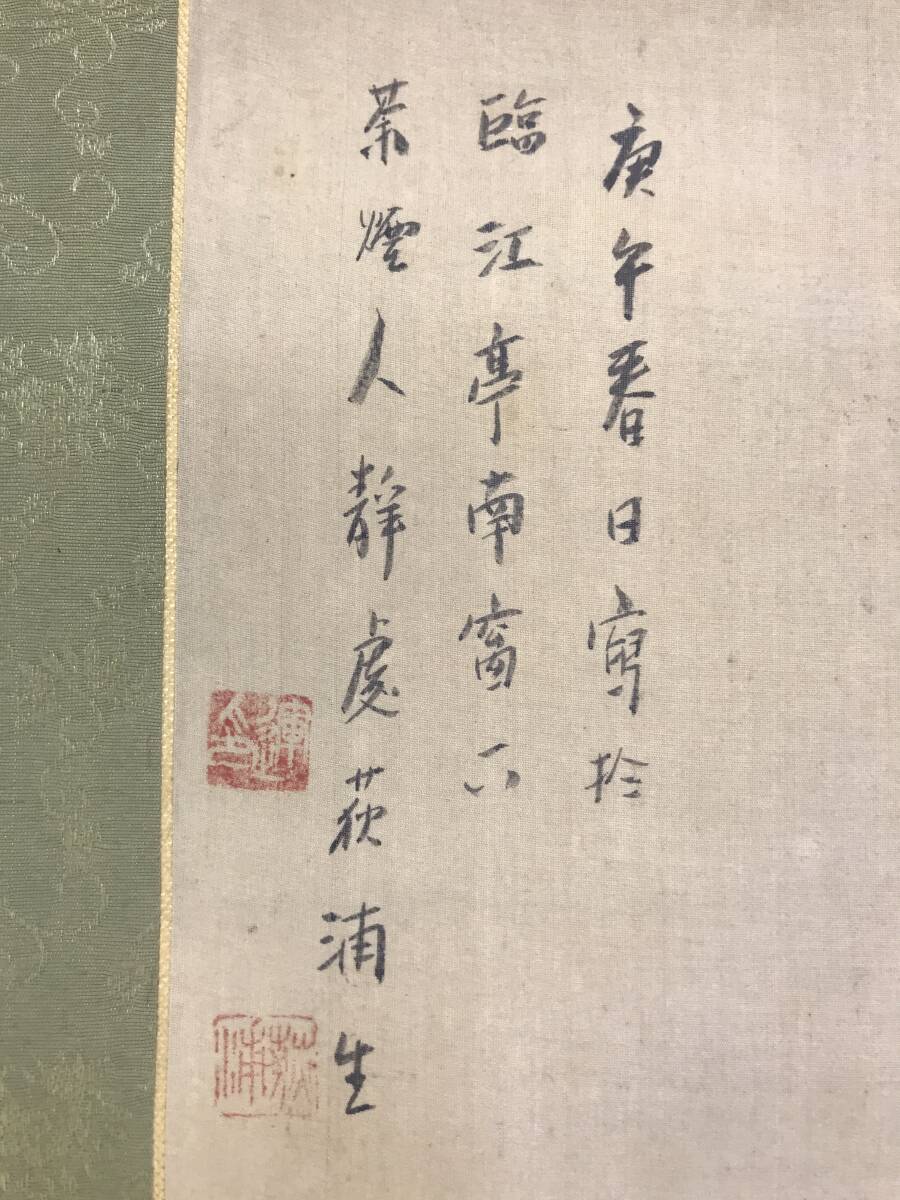 庚午春日寫於
臨江亭南窗下
茶煙人靜處荻浦生
荻浦